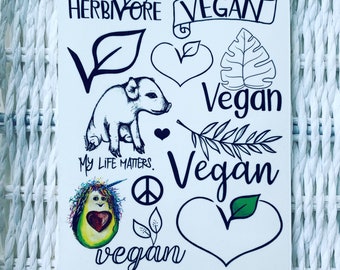 HERBIVORE
VEGAN
Vegan
MY LIFE MATTERS
Vegan
vegan